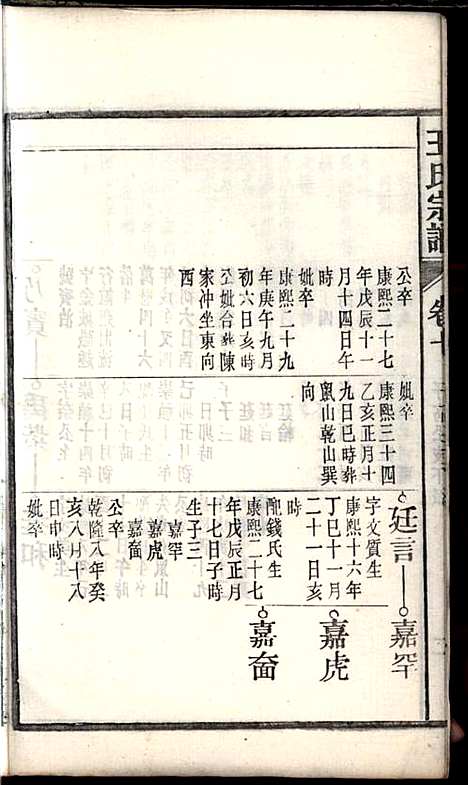 王氏宗譜
卷十
公卒
康熙二十七
年戊辰十一
月十四日午
時
妣卒
康熙二十九
年庚午九月
初六日亥時
仝妣合葬陳
家冲坐東向
酉
妣卒
康熙三十四
乙亥正月十
九日巳時葬
鼠山乾山巽
向
廷言
字文質生
康熙十六年
丁巳十一月
二十一日亥
時
配錢氏生
康熙二十七
年戊辰正月
十七日子時
生子三
嘉罕
嘉虎
嘉奮
公卒
乾隆八年癸
亥八月十八
日申時
妣卒
嘉罕
嘉虎
嘉奮